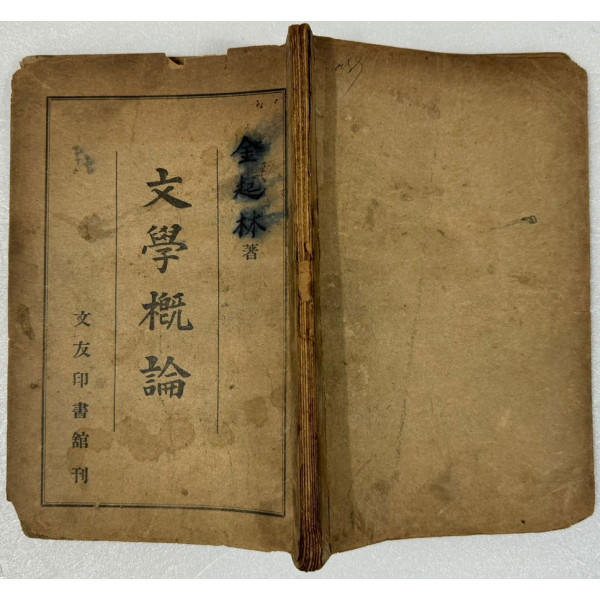 金起林 著
文學概論
文友印書館 刊